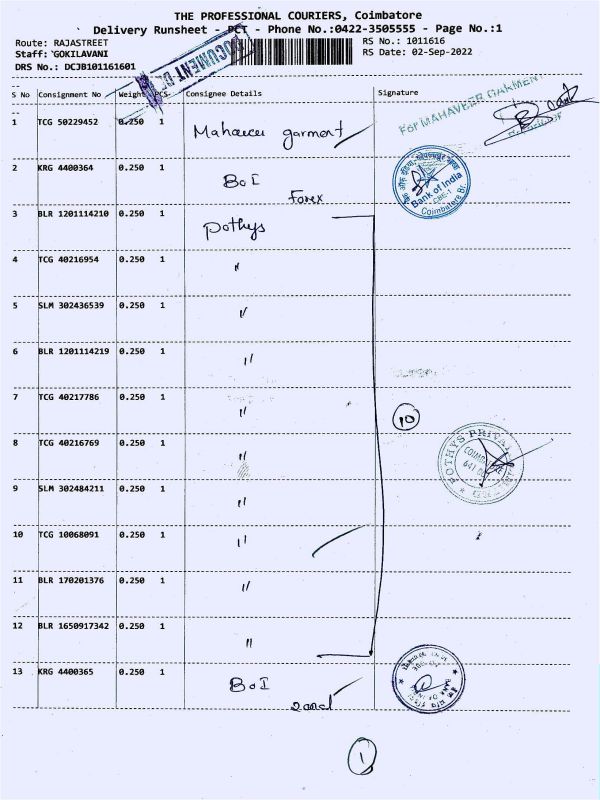 THE PROFESSIONAL COURIERS, Coimbatore
Delivery Runsheet - PCT - Phone No.:0422-3505555 - Page No.:1
Route: RAJASTREET RS No.: 1011616
Staff: GOKILAVANI RS Date: 02-Sep-2022
DRS No.: DCJB101161601
DOCUMENT
S No Consignment No Weight PCS Consignee Details Signature
For MAHAVEER GARMENT
1 TCG 50229452 0.250 1 Mahaveer garment
2 KRG 4400364 0.250 1 BoI
Forex
Bank of India
CBE-1
Coimbatore Br.
3 BLR 1201114210 0.250 1 Pothys
4 TCG 40216954 0.250 1 "
5 SLM 302436539 0.250 1 "
6 BLR 1201114219 0.250 1 "
7 TCG 40217786 0.250 1 "
10
8 TCG 40216769 0.250 1 "
POTHYS
9 SLM 302484211 0.250 1 "
10 TCG 10068091 0.250 1 "
11 BLR 170201376 0.250 1 "
12 BLR 1650917342 0.250 1 "
13 KRG 4400365 0.250 1 BoI
1